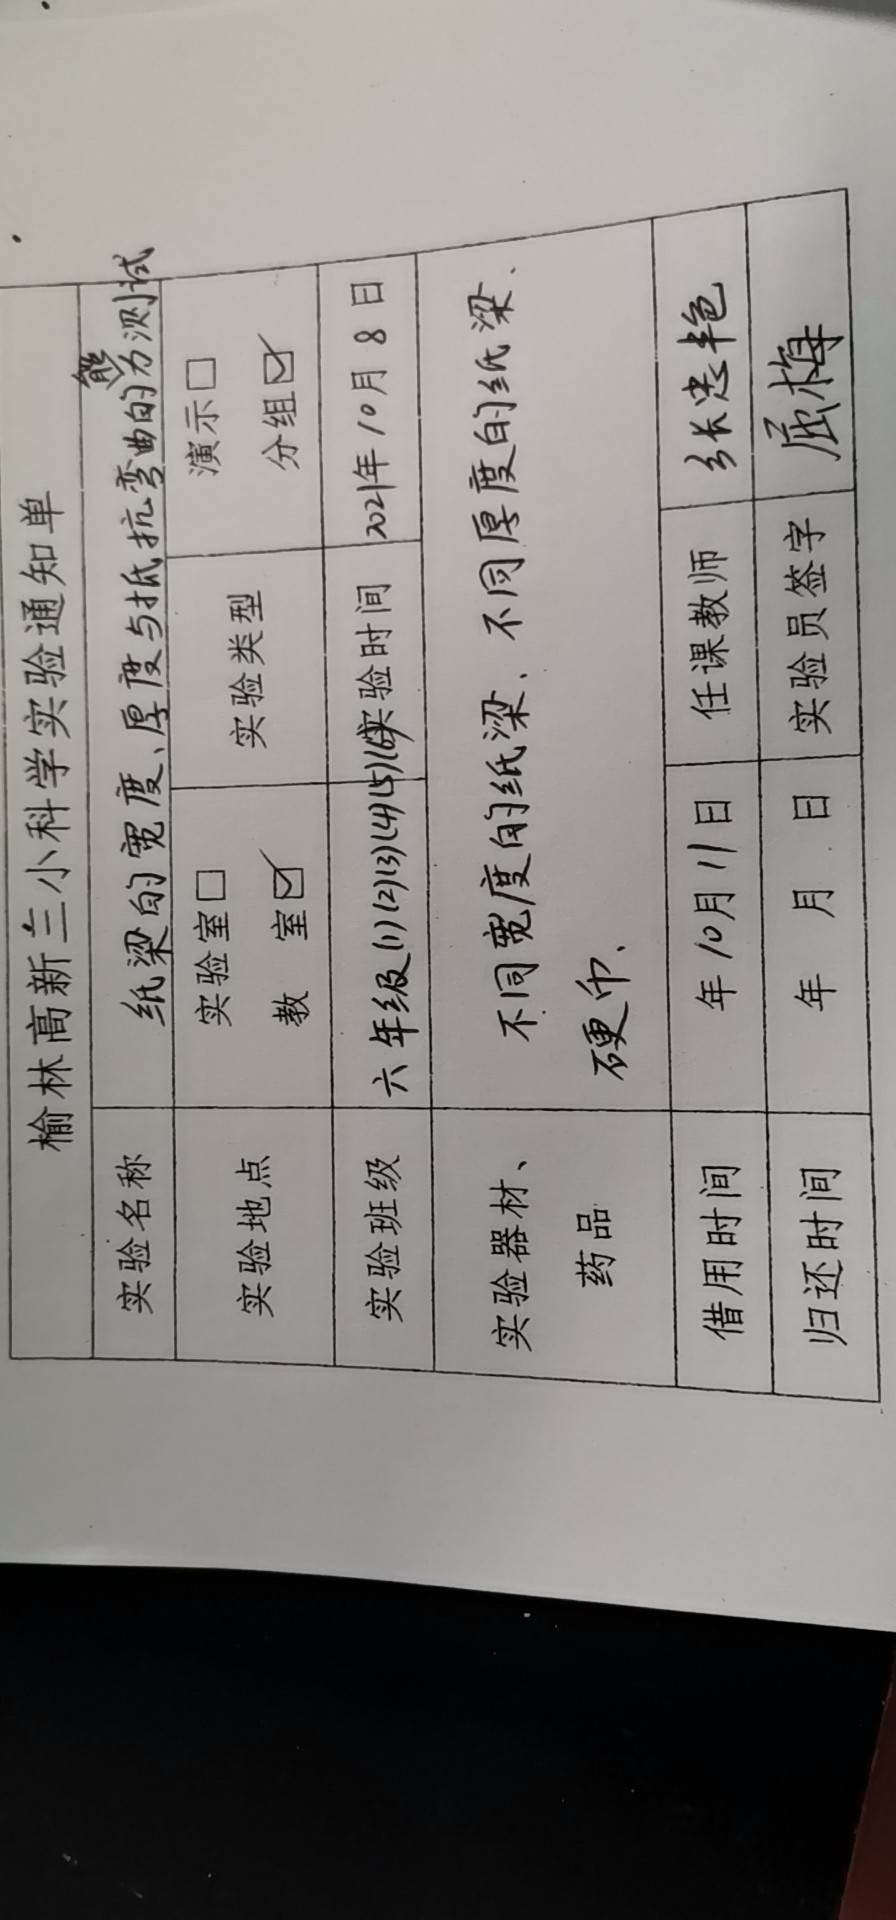 榆林高新三小科学实验通知单
实验名称 纸梁的宽度、厚度与抵抗弯曲的能力测试
实验地点 实验室□ 教 室☑ 实验类型 演示□ 分组☑
实验班级 六年级(1)(2)(3)(4)(5)(6) 实验时间 2021年10月8日
实验器材、药品 不同宽度的纸梁、不同厚度的纸梁、
硬币、
借用时间 年10月11日 任课教师 张忠艳
归还时间 年 月 日 实验员签字 屈梅